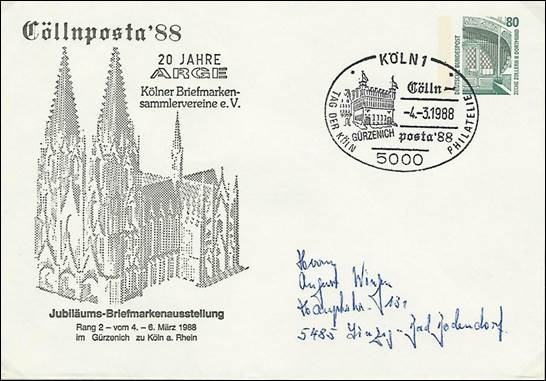 Cöllnposta'88
20 JAHRE
ARGE
Kölner Briefmarken-
sammlervereine e.V.
Jubiläums-Briefmarkenausstellung
Rang 2 – vom 4. – 6. März 1988
im Gürzenich zu Köln a. Rhein
80
DEUTSCHE BUNDESPOST
ZECHE ZOLLERN II DORTMUND
KÖLN 1
Cölln
-4.-3.1988
posta'88
GÜRZENICH
TAG DER KÖLN PHILATELIE
5000
Herrn
August
Hauptstr. 131
5485 Sinzig-Bad Bodendorf.